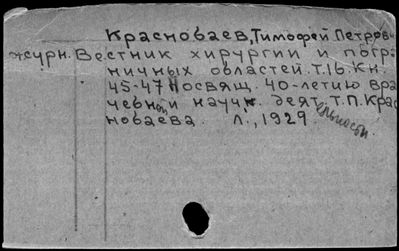 Краснобаев, Тимофей Петрович
журн. Вестник хирургии и погра
ничных областей. Т.16. Кн.
45-47 Посвящ. 40-летию вра
чебной научн. деятельности Т.П. Крас
нобаева. Л., 1929.